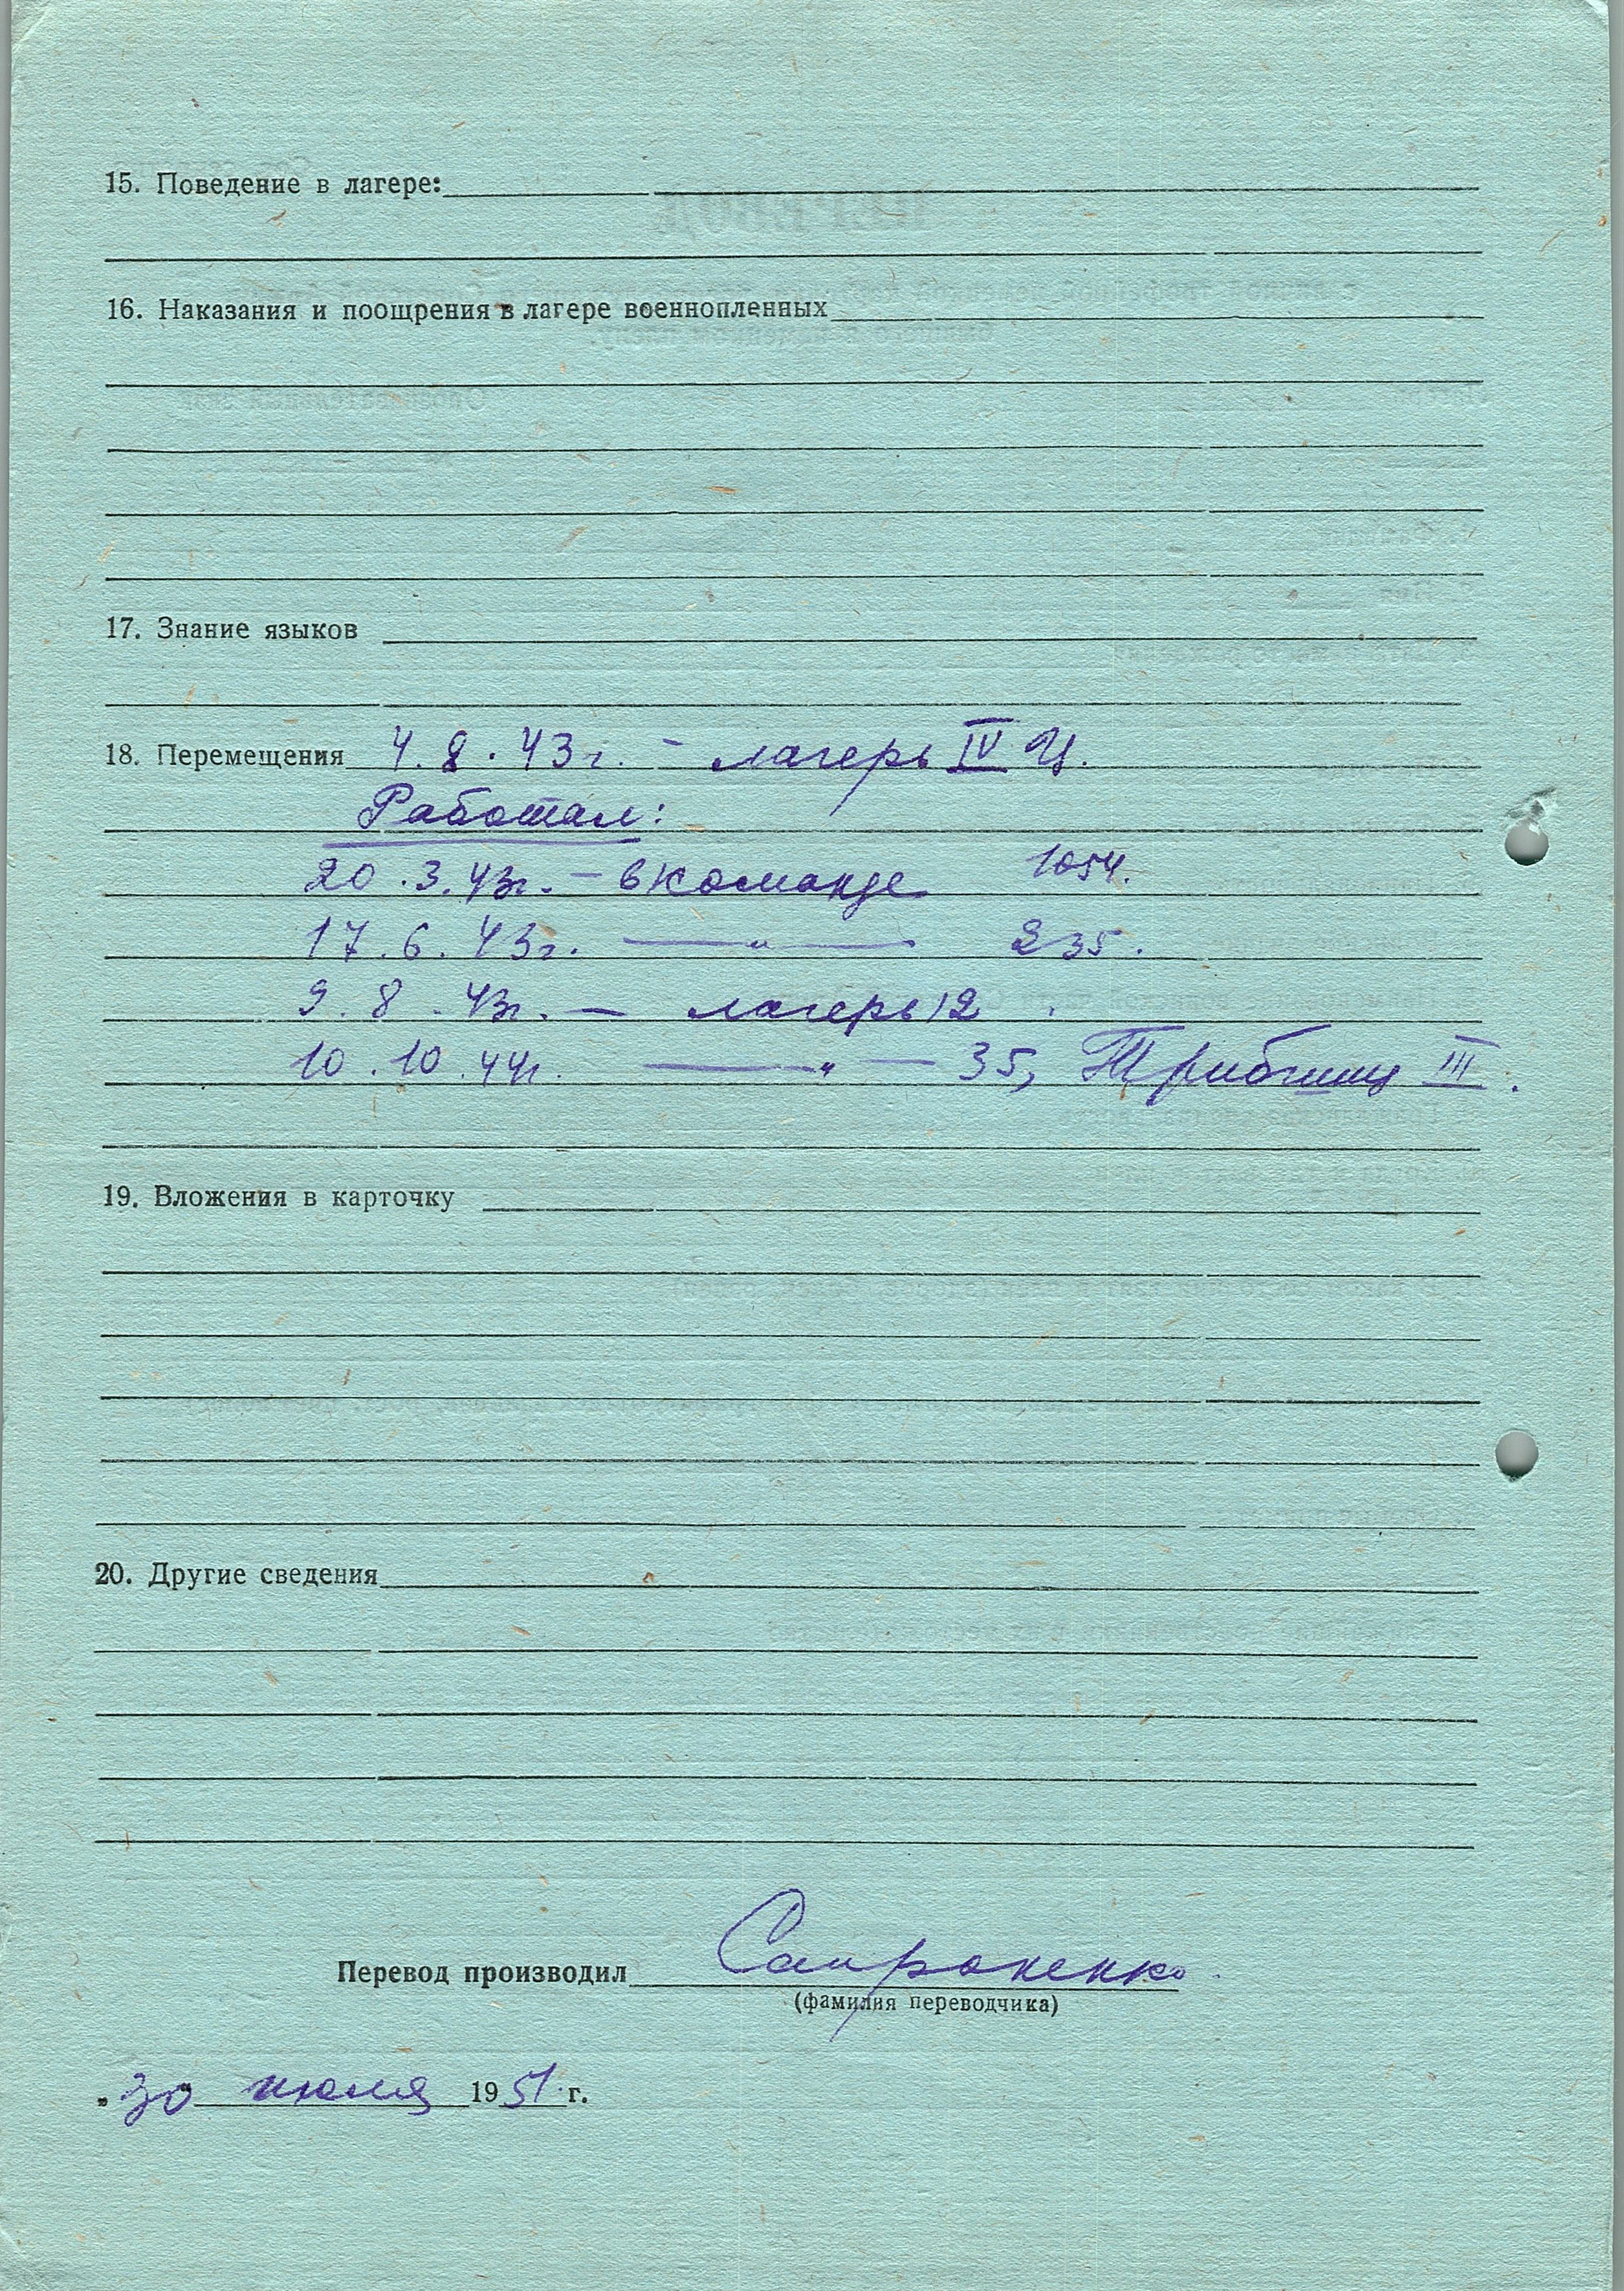 15. Поведение в лагере:
16. Наказания и поощрения в лагере военнопленных
17. Знание языков
18. Перемещения 4.8.43г. – лагерь IV Ц.
Работал:
20.3.43г. – в команде 1054.
17.6.43г. —„— 235.
9.8.43г. — лагерь 12.
10.10.44г. —„— 35, III.
19. Вложения в карточку
20. Другие сведения
Перевод производил
(фамилия переводчика)
„30" июля 1951 г.